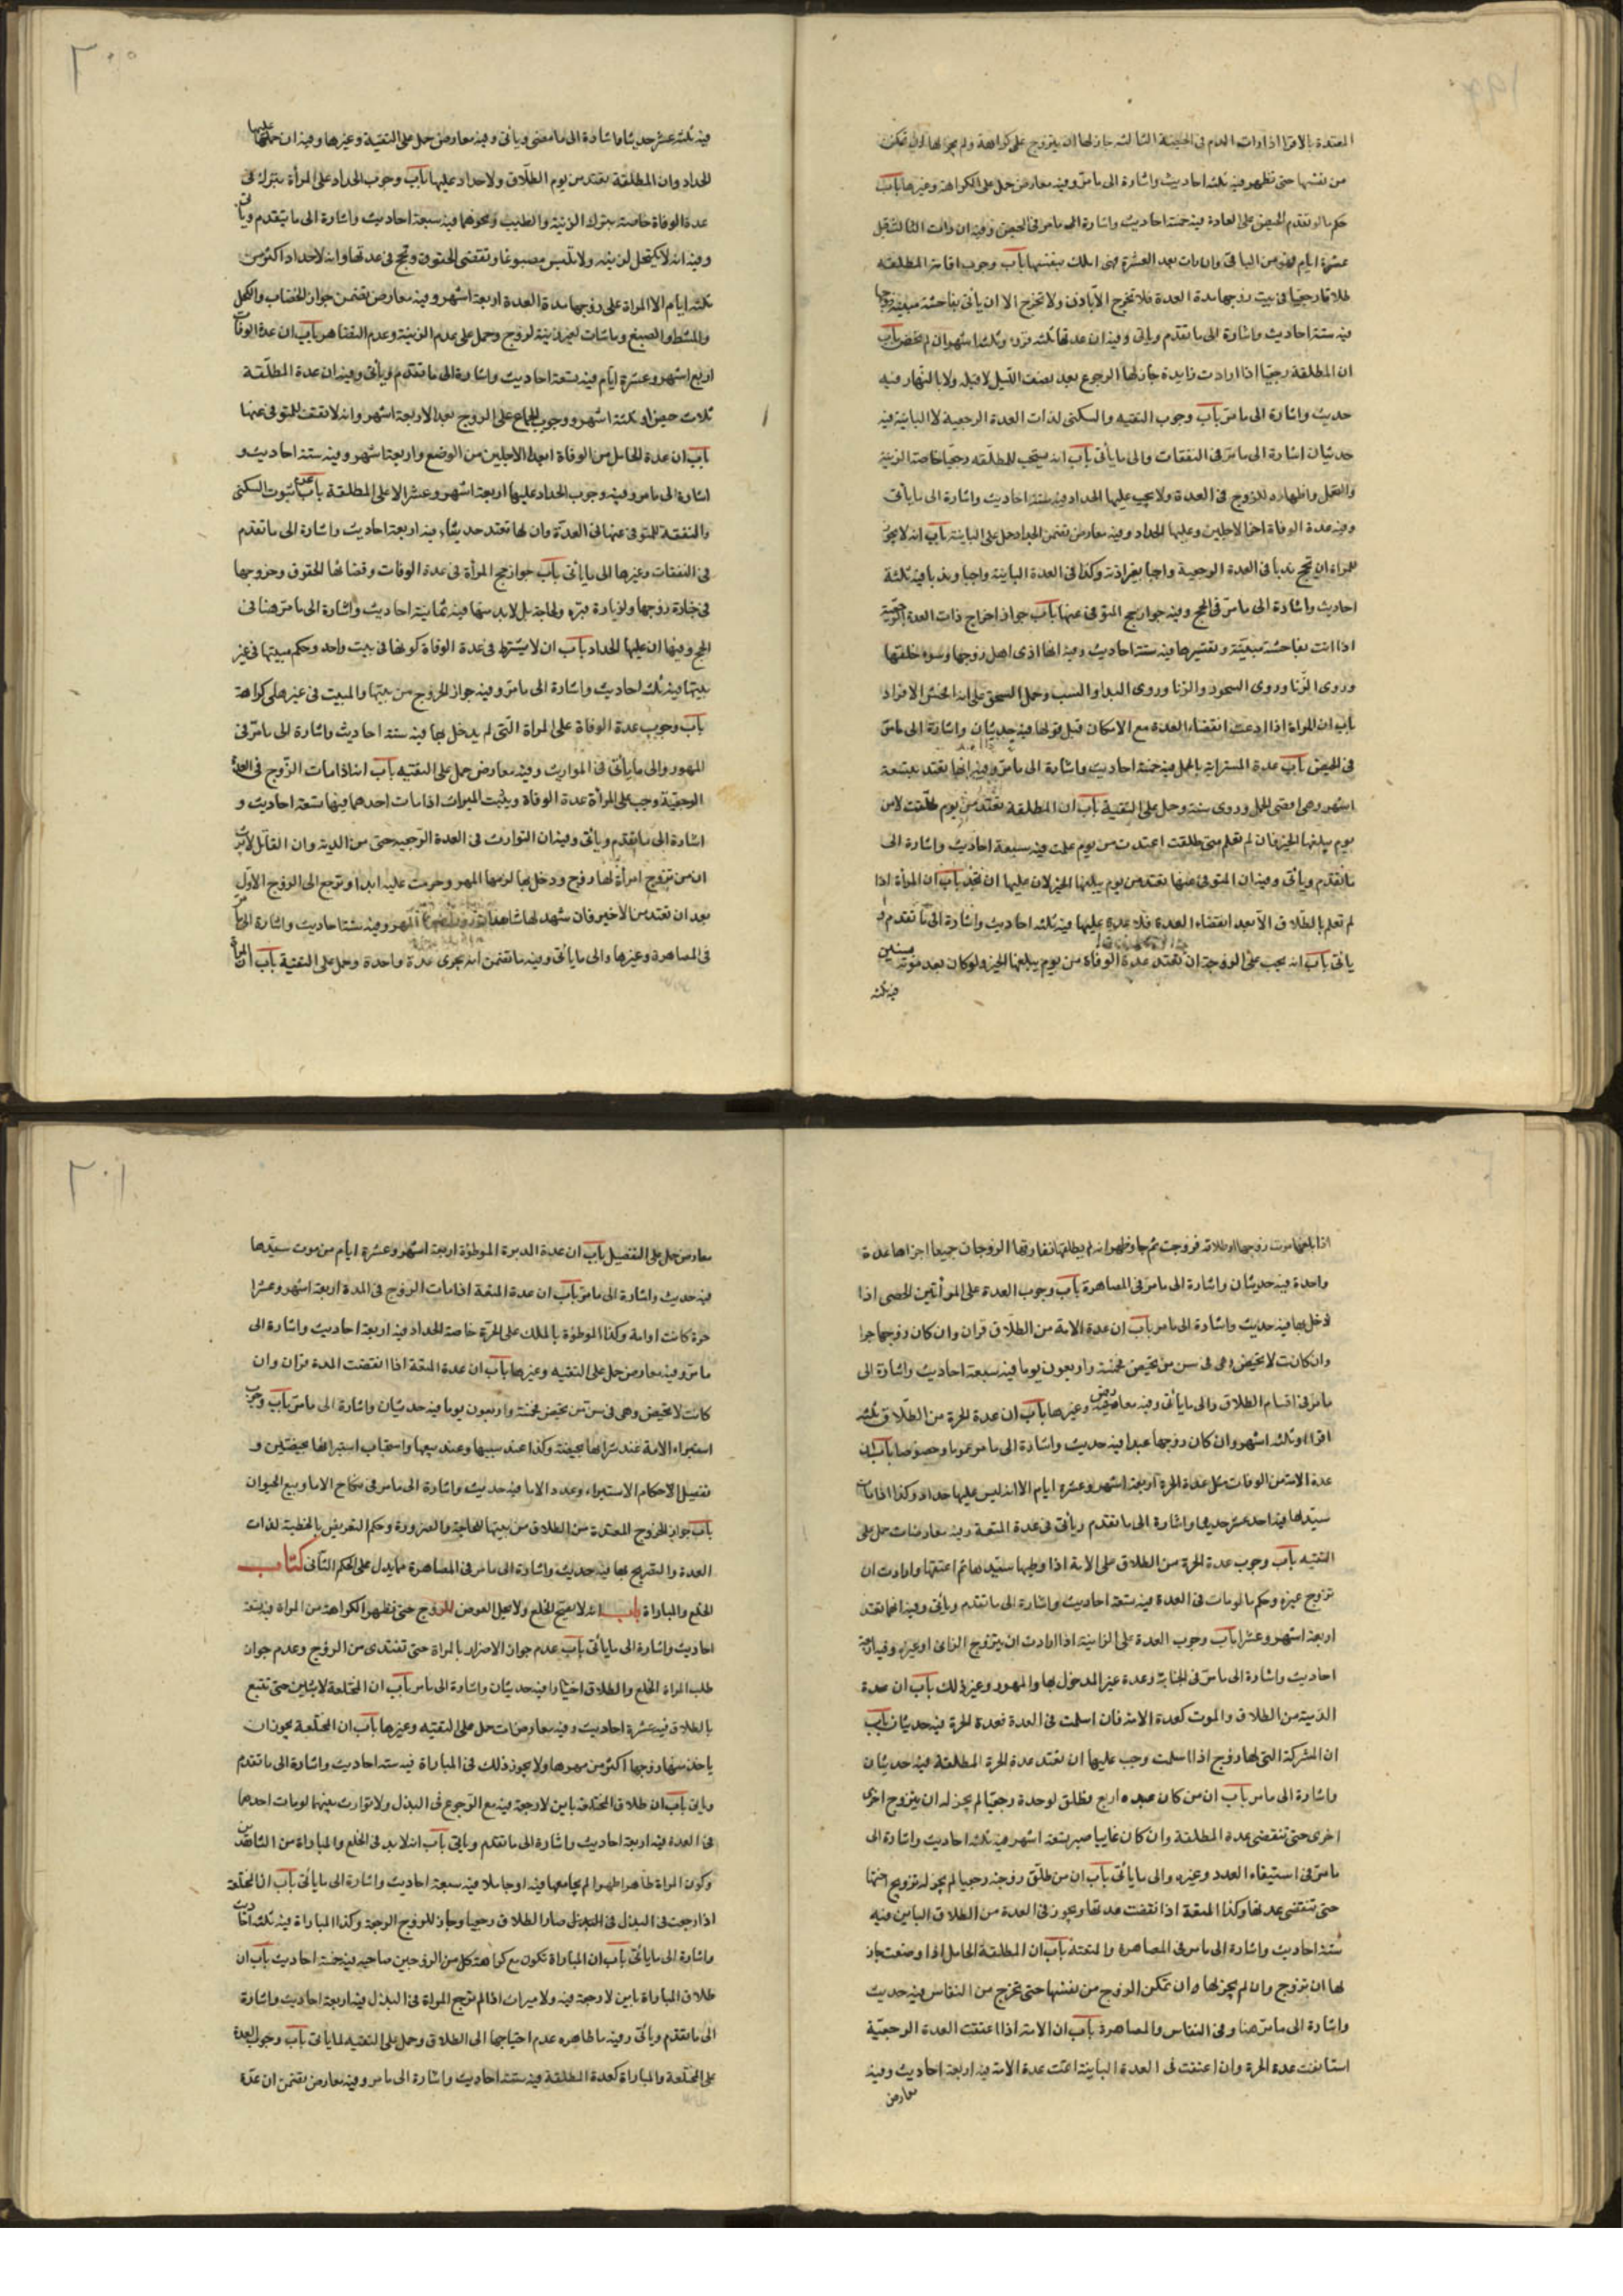 المعتدة بالاقرا اذا رات الدم فى الحيضة الثالثه جاز لها ان يتزوج على كراهة ولم يجز لها ان تمكن
من نفسها حتى تطهر فيه ثلثه احاديث واشارة الى ما مر وفيه معارض حمل على الكراهة وغيرها باب
حكم ما لو تقدم الحيض على العادة فيه خمسة احاديث واشارة الى ما مر فى الحيض وفيه ان رات الثالث قبل
عشرة ايام فهو من الباقى وان رات بعد العشرة فهى املك بنفسها باب وجوب اقامة المطلقه
طلاقا رجعيا فى بيت زوجها مدة العدة فلا تخرج الا باذن ولا تخرج الا ان ياتى بفاحشة مبينة
فيه ستة احاديث واشارة الى ما تقدم وياتى وفيه ان عدتها ثلثه قرؤ وثلثه اشهر ان لم تحض باب
ان المطلقة رجعيا اذا ارادت زيارة جاز لها الرجوع بعد نصف الليل لا قبله ولا بالنهار فيه
حديث واشارة الى ما مر باب وجوب النفقه والسكنى لذات العدة الرجعية لا البائنة فيه
حديثان اشارة الى ما مر فى النفقات والى ما ياتى باب انه يستحب للمطلقه رجعيا خاصة الزينة
والتجمل واظهاره للزوج فى العدة ولا يجب عليها الحداد فيه ستة احاديث واشارة الى ما ياتى
وفيه عدة الوفاة اخر الاجلين وعليها الحداد وفيه معارض تضمن الحداد حمل على البائنة باب انه لا يجوز
للمراة ان تحج ندبا فى العدة الرجعية واجبا بغير اذنه وكذا فى العدة البائنة واجبا وندبا فيه ثلثة
احاديث واشارة الى ما مر فى الحج وفيه جواز حج المتوفى عنها باب جواز اخراج ذات العدة الرجعية
اذا اتت بفاحشة مبينة وتفسيرها فيه ستة احاديث وفيه انها اذى اهل زوجها وسوء خلقها
وروى الزنا وروى السحق والزنا وروى البذا والسب وحمل السحق على انه احد الافراد
باب ان المراة اذا ادعت انقضاء العدة مع الامكان قبل قولها فيه حديثان واشارة الى ما مر
فى الحيض باب عدة المسترابة بالحمل فيه خمسة احاديث واشارة الى ما مر وفيه انها تعتد بتسعة
اشهر وهى اقصى الحمل وروى سنة وحمل على التقية باب ان المطلقة تعتد من يوم طلقت لا من
يوم يبلغها الخبر فان لم تعلم متى طلقت اعتدت من يوم علمت فيه سبعة احاديث واشارة الى
ما تقدم وياتى وفيه ان المتوفى عنها تعتد من يوم يبلغها الخبر لان عليها ان تحد باب ان المراة اذا
لم تعلم بالطلاق الا بعد انقضاء العدة فلا عدة عليها فيه ثلثه احاديث واشارة الى ما تقدم و
ياتى باب انه يجب على الزوجة ان تعتد عدة الوفاة من يوم يبلغها الخبر ولو كان بعد موته بسنين
فيه ثلثه
٢٠٠
فيه ثلثه عشر حديثا واشارة الى ما مضى وياتى وفيه معارض حمل على التقية وغيرها وفيه ان عليها
الحداد وان المطلقة تعتد من يوم الطلاق ولا حداد عليها باب وجوب الحداد على المراة بترك فى
عدة الوفاة خاصة بترك الزينة والطيب ونحوهما فيه سبعة احاديث واشارة الى ما يتقدم وياتى
وفيه انه لا تكتحل لزينه ولا تلبس مصبوغا وتقضى الحقوق وتحج فى عدتها وانه لا حداد اكثر من
ثلثه ايام الا المراة على زوجها مدة العدة اربعة اشهر وفيه معارض تضمن جواز الخضاب والكحل
والمشط والصبغ وما شات لغير زينة لزوج وحمل على عدم الزينة وعدم التظاهر باب ان عدة الوفات
اربع اشهر وعشرة ايام فيه سبعة احاديث واشارة الى ما تقدم وياتى وفيه ان عدة المطلقة
ثلاث حيض او ثلثة اشهر ووجوب الجماع على الزوج بعد الاربعة اشهر وانه لا نفقة للمتوفى عنها
باب ان عدة الحامل من الوفاة ابعد الاجلين من الوضع واربعة اشهر وفيه ستة احاديث و
اشارة الى ما مر وفيه وجوب الحداد عليها اربعة اشهر وعشرا لا على المطلقة باب عدم ثبوت السكنى
والنفقة للمتوفى عنها فى العدة وان لها تعتد حيث شاءت فيه اربعة احاديث واشارة الى ما تقدم
فى النفقات وغيرها الى ما ياتى باب جواز حج المراة فى عدة الوفات وقضائها الحقوق وخروجها
فى جنازة زوجها ولزيارة قبره ولحاجة بل لابد منها فيه ثمانية احاديث واشارة الى ما مر هنا فى
الحج وفيها ان عليها الحداد باب ان لا يشترط فى عدة الوفاة كونها فى بيت واحد وحكم مبيتها فى غير
بيتها فيه ثلث احاديث واشارة الى ما مر وفيه جواز الخروج من بيتها والمبيت فى غيره على كراهة
باب وجوب عدة الوفاة على المراة التى لم يدخل بها فيه ستة احاديث واشارة الى ما مر فى
المهور والى ما ياتى فى المواريث وفيه معارض حمل على التقيه باب انه اذا مات الزوج فى العدة
الرجعية وجب على المراة عدة الوفاة ويثبت الميراث اذا مات احدهما فيها تسعة احاديث و
اشارة الى ما تقدم وياتى وفيه ان التوارث فى العدة الرجعيه حتى من الدية وان القاتل لا يرث
ان من تزوج امراة لها زوج ودخل بها لزمها المهر وحرمت عليه ابدا وترجع الى الزوج الاول
بعد ان تعتد من الاخير فان شهد لها شاهدان المهر وفيه ستة احاديث واشارة الى ما مر
فى المصاهرة وغيرها والى ما ياتى وفيه ما تضمن انه يجزى عدة واحدة وحمل على التقية باب ان المراة
اذا بلغها موت زوجها او طلاقه فزوجت ثم جا وظهر انه لم يطلقها ففارقها الزوجات جميعا اجزاها عدة
واحدة فيه حديثان واشارة الى ما مر فى المصاهرة باب وجوب العدة على المراتين الخصى اذا
دخل بها فيه حديث واشارة الى ما مر باب ان عدة الامة من الطلاق قران وان كان زوجها حرا
وان كانت لا تحيض وهى فى سن من تحيض خمسة واربعون يوما فيه سبعة احاديث واشارة الى
ما مر فى اقسام الطلاق والى ما ياتى وفيه معارض وغيرها باب ان عدة الحرة من الطلاق ثلثه
اقراء او ثلثه اشهر وان كان زوجها عبدا فيه حديث واشارة الى ما مر عموما وخصوصا باب ان
عدة الامة من الوفات مثل عدة الحرة اربعة اشهر وعشرة ايام الا انه ليس عليها حداد وكذا اذا مات
سيدها فيه احد عشر حديثا واشارة الى ما تقدم وياتى فى عدة المتعة وفيه معارضات حمل على
التقيه باب وجوب عدة الحرة من الطلاق على الامة اذا وطيها سيدها ثم اعتقها وارادت ان
تزوج غيره وحكم ما لو مات فى العدة فيه سبعة احاديث واشارة الى ما تقدم وياتى وفيه انها تعتد
اربعة اشهر وعشرا باب وجوب العدة على الزانية اذا ارادت ان يتزوج الزانى او غيره وفيه اربعة
احاديث واشارة الى ما مر فى الجنابة وعدة غير المدخول بها والمهور وغير ذلك باب ان عدة
الذمية من الطلاق والموت كعدة الامة فان اسلمت فى العدة فعدة الحرة فيه حديثان باب
ان المشركة التى لها زوج اذا اسلمت وجب عليها ان تعتد عدة الحرة المطلقة فيه حديثان
واشارة الى ما مر باب ان من كان عنده اربع فطلق واحدة رجعيا لم يجز له ان يتزوج اخرى
اخرى حتى تنقضى عدة المطلقة وان كان غايبا صبر تسعة اشهر فيه ثلثه احاديث واشارة الى
ما مر فى استيفاء العدد وغيره والى ما ياتى باب ان من طلق زوجته رجعيا لم يجز له تزويج اختها
حتى تنقضى عدتها وكذا المتعة اذا انقضت عدتها ويجوز فى العدة من الطلاق الباين فيه
ستة احاديث واشارة الى ما مر فى المصاهرة والمتعة باب ان المطلقة الحامل اذا وضعت جاز
لها ان تزوج وان لم يجز لها ان تمكن الزوج من نفسها حتى تخرج من النفاس فيه حديث
واشارة الى ما مر هنا وفى النفاس والمصاهرة باب ان الامة اذا اعتقت العدة الرجعية
استانفت عدة الحرة وان اعتقت فى العدة الباينة اتمت عدة الامة فيه اربعة احاديث وفيه
معارض
٢٠١
معارض حمل على التفصيل باب ان عدة المدبرة الموطؤة اربعة اشهر وعشرة ايام من موت سيدها
فيه حديث واشارة الى ما مر باب ان عدة المتعة اذا مات الزوج فى المدة اربعة اشهر وعشرا
حرة كانت او امة وكذا الموطؤة بالملك على الحرة خاصة الحداد فيه اربعة احاديث واشارة الى
ما مر وفيه معارض حمل على التقيه وغيرها باب ان عدة المتعة اذا انقضت المدة قران وان
كانت لا تحيض وهى فى سن من تحيض خمسة واربعون يوما فيه حديثان واشارة الى ما مر باب وجوب
استبراء الامة عند شرائها بحيضة وكذا عند سبيها وعند بيعها واستحباب استبرائها بحيضتين و
تفصيل الاحكام الاستبراء وعدد الاما فيه حديث واشارة الى ما مر فى نكاح الاما وبيع الحيوان
باب جواز الخروج المعتدة من الطلاق من بيتها للحاجة والضرورة وحكم التعريض بالخطبة لذات
العدة والتصريح بها فيه حديث واشارة الى ما مر فى المصاهرة مما يدل على الحكم الثانى كتاب
الخلع والمباراة باب انه لا يصح الخلع ولا يحل العوض للزوج حتى تظهر الكراهة من المراة فيه تسعة
احاديث واشارة الى ما ياتى باب عدم جواز الاضرار بالمراة حتى تفتدى من الزوج وعدم جواز
طلب المراة الخلع والطلاق اختيارا فيه حديثان واشارة الى ما مر باب ان المختلعة لا تبين حتى تتبع
بالطلاق فيه عشرة احاديث وفيه معارضات حمل على التقيه وغيرها باب ان المختلعة يجوز ان
ياخذ منها زوجها اكثر من مهرها ولا يجوز ذلك فى المباراة فيه ستة احاديث واشارة الى ما تقدم
وياتى باب ان طلاق المختلعة باين لا رجعة فيه مع الرجوع فى البذل ولا توارث بينهما لو مات احدهما
فى العدة فيه اربعة احاديث واشارة الى ما تقدم وياتى باب انه لابد فى الخلع والمباراة من الشاهدين
وكون المراة طاهرا طهرا لم يجامعها فيه او حاملا فيه سبعة احاديث واشارة الى ما ياتى باب ان المختلعة
اذا رجعت فى البذل صار الطلاق رجعيا وجاز للزوج الرجعة وكذا المباراة فيه ثلثه احاديث
واشارة الى ما ياتى باب ان المباراة تكون مع كراهة كل من الزوجين صاحبه فيه خمسة احاديث باب ان
طلاق المباراة باين لا رجعة فيه ولا ميراث اذا لم ترجع المراة فى البذل فيه اربعة احاديث واشارة
الى ما تقدم وياتى وفيه ما ظاهره عدم احتياجها الى الطلاق وحمل على التقيه لما ياتى باب وجوب العدة
على المختلعة والمباراة كعدة المطلقة فيه ستة احاديث واشارة الى ما مر وفيه معارض تضمن ان عدة